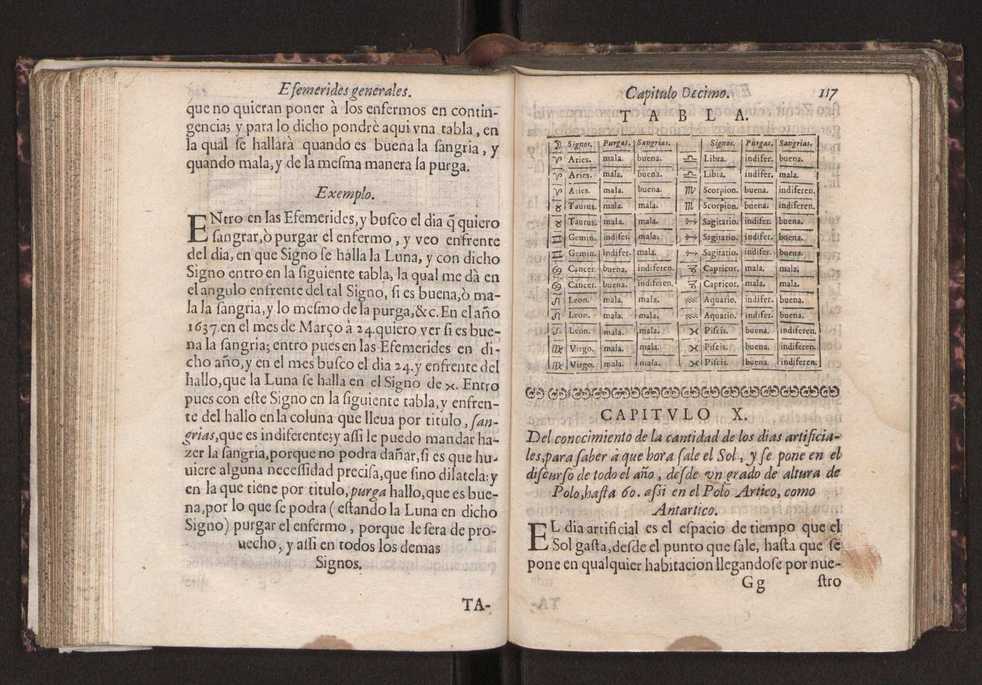 Efemerides generales.
que no quieran poner à los enfermos en contin-
gencia; y para lo dicho pondrè aqui vna tabla, en
la qual se hallarà quando es buena la sangria, y
quando mala, y de la mesma manera la purga.
Exemplo.
ENtro en las Efemerides, y busco el dia q̃ quiero
sangrar, ò purgar el enfermo, y veo enfrente
del dia, en que Signo se halla la Luna, y con dicho
Signo entro en la siguiente tabla, la qual me dà en
el angulo enfrente del tal Signo, si es buena, ò ma-
la la sangria, y lo mesmo de la purga, &c. En el año
1637. en el mes de Março à 24. quiero ver si es bue-
na la sangria; entro pues en las Efemerides en di-
cho año, y en el mes busco el dia 24. y enfrente del
hallo, que la Luna se halla en el Signo de ♓. Entro
pues con este Signo en la siguiente tabla, y enfren-
te del hallo en la coluna que lleua por titulo, san-
grias, que es indiferente; y assi le puedo mandar ha-
zer la sangria, porque no podra dañar, si es que hu-
uiere alguna necessidad precisa, que sino dilatela: y
en la que tiene por titulo, purga hallo, que es bue-
na, por lo que se podra (estando la Luna en dicho
Signo) purgar el enfermo, porque le sera de pro-
uecho, y assi en todos los demas
Signos.
TA-
Capitulo Decimo. 117
TABLA.
☽ Signos. Purgas. Sangrias. Signos. Purgas. Sangrias.
♈ Aries. mala. buena. ♎ Libra. indifer. buena.
♈ Aries. mala. buena. ♎ Libra. indifer. mala.
♈ Aries. mala. buena. ♏ Scorpion. buena. indiferen.
♉ Taurus. mala. mala. ♏ Scorpion. buena. indiferen.
♉ Taurus. mala. mala. ♐ Sagitario. indifer. buena.
♊ Gemin. indifer. mala. ♐ Sagitario. indifer. buena.
♊ Gemin. indifer. mala. ♐ Sagitario. indifer. buena.
♋ Cancer. buena. indiferen. ♑ Capricor. mala. mala.
♋ Cancer. buena. indiferen. ♑ Capricor. mala. mala.
♌ Leon. mala. mala. ♒ Aquario. indifer. buena.
♌ Leon. mala. mala. ♒ Aquario. indifer. buena.
♌ Leon. mala. mala. ♓ Piscis. buena. indiferen.
♍ Virgo. mala. mala. ♓ Piscis. buena. indiferen.
♍ Virgo. mala. mala. ♓ Piscis. buena. indiferen.
CAPITVLO X.
Del conocimiento de la cantidad de los dias artificia-
les, para saber à que hora sale el Sol, y se pone en el
discurso de todo el año, desde vn grado de altura de
Polo, hasta 60. assi en el Polo Artico, como
Antartico.
EL dia artificial es el espacio de tiempo que el
Sol gasta, desde el punto que sale, hasta que se
pone en qualquier habitacion llegandose por nue-
Gg stro